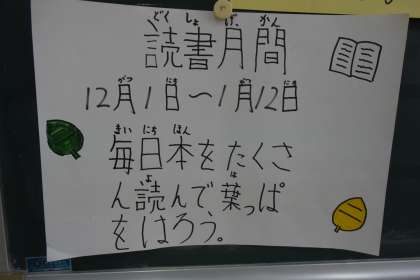 どくしょげっかん
読書月間
がつ にち がつ にち
12月1日〜1月12日
まい にち ほん
毎日本をたくさ
よ は
ん読んで葉っぱ
をはろう。